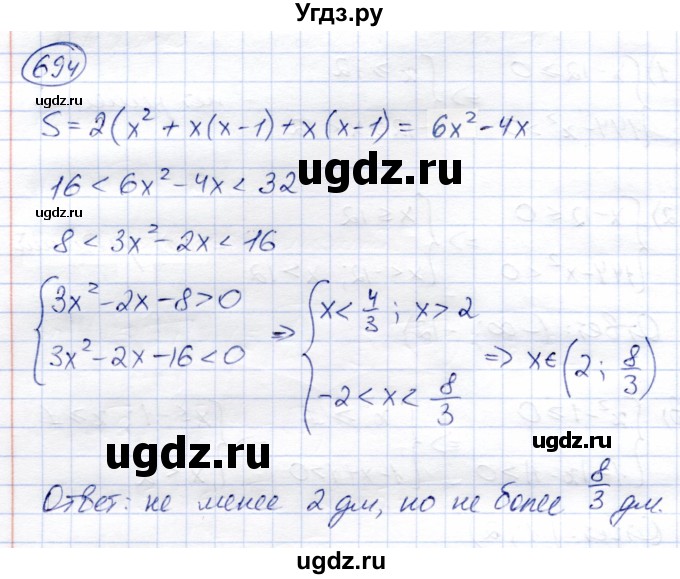 Угдз.ру
694
ugdz.ru
S = 2(x² + x(x-1) + x(x-1) = 6x² - 4x
ugdz.ru
16 < 6x² - 4x < 32
ugdz.ru
8 < 3x² - 2x < 16
{3x² - 2x - 8 > 0
3x² - 2x - 16 < 0
⇒ {x < 4/3 ; x > 2
-2 < x < 8/3
⇒ x ∈ (2 ; 8/3)
ugdz.ru
ugdz.ru
Ответ: не менее 2 дм, но не более 8/3 дм.
ugdz.ru
ugdz.ru
ugdz.ru